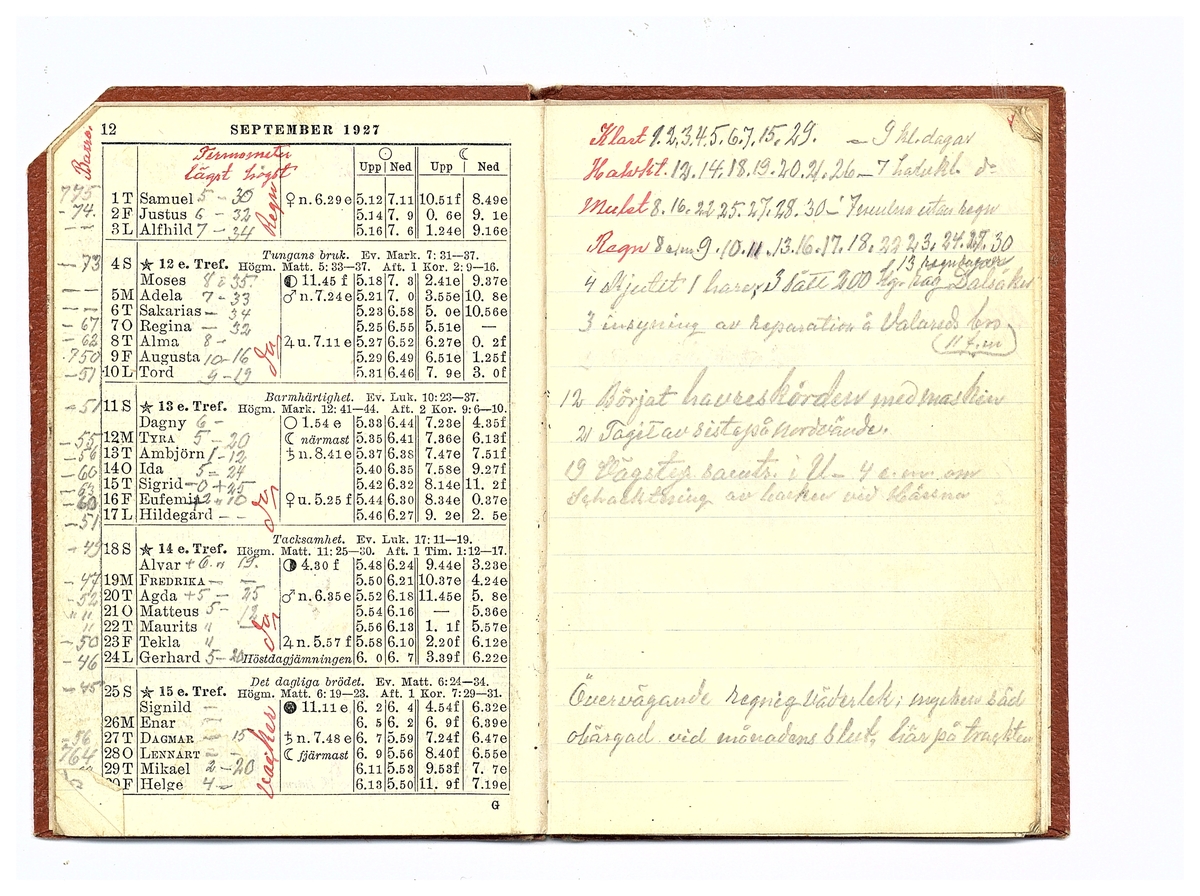 12 SEPTEMBER 1927
Barro.
Termometer
lägst högst
☉ ☾
Upp Ned Upp Ned
775 1 T Samuel 5 - 30 ♀ n. 6.29 e 5.12 7.11 10.51 f 8.49e
- 74. 2 F Justus 6 - 32 5.14 7. 9 0. 6e 9. 1e
- - 3 L Alfhild 7 - 34 Regn 5.16 7. 6 1.24e 9.16e
Tungans bruk. Ev. Mark. 7: 31—37.
- 73 4 S ★ 12 e. Tref. Högm. Matt. 5: 33—37. Aft. 1 Kor. 2: 9—16.
Moses 8 - 35 11.45 f 5.18 7. 3 2.41e 9.37e
5 M Adela 7 - 33 ♂ n. 7.24 e 5.21 7. 0 3.55e 10. 8e
6 T Sakarias - 34 5.23 6.58 5. 0e 10.56e
- 67 7 O Regina - 32 5.25 6.55 5.51e —
- 62 8 T Alma 8 - ♃ u. 7.11 e 5.27 6.52 6.27e 0. 2f
750 9 F Augusta 10 - 16 5.29 6.49 6.51e 1.25f
- 51 10 L Tord 9 - 19 do 5.31 6.46 7. 9e 3. 0f
Barmhärtighet. Ev. Luk. 10: 23—37.
- 51 11 S ★ 13 e. Tref. Högm. Mark. 12: 41—44. Aft. 2 Kor. 9: 6—10.
Dagny 6 - ○ 1.54 e 5.33 6.44 7.23e 4.35f
- 55 12 M TYRA 5 - 20 ☾ närmast 5.35 6.41 7.36e 6.13f
- 56 13 T Ambjörn 1 - 12 ♄ n. 8.41 e 5.37 6.38 7.47e 7.51f
- 60 14 O Ida 5 - 24 5.40 6.35 7.58e 9.27f
- 63 15 T Sigrid - 0 + 25 5.42 6.32 8.14e 11. 2f
- 60 16 F Eufemia 2 - 10 ♀ u. 5.25 f 5.44 6.30 8.34e 0.37e
- 51 17 L Hildegård - - do 5.46 6.27 9. 2e 2. 5e
Tacksamhet. Ev. Luk. 17: 11—19.
- 49 18 S ★ 14 e. Tref. Högm. Matt. 11: 25—30. Aft. 1 Tim. 1: 12—17.
Alvar + 6. " 19. 4.30 f 5.48 6.24 9.44e 3.23e
- 47 19 M FREDRIKA - - 5.50 6.21 10.37e 4.24e
- 52 20 T Agda +5 - 25 ♂ n. 6.35 e 5.52 6.18 11.45e 5. 8e
" 11 21 O Matteus 5 - 12 5.54 6.16 — 5.36e
" 22 T Maurits " - 5.56 6.13 1. 1f 5.57e
- 50 23 F Tekla " do ♃ n. 5.57 f 5.58 6.10 2.20f 6.12e
- 46 24 L Gerhard 5 - 20 Höstdagjämningen 6. 0 6. 7 3.39f 6.22e
Det dagliga brödet. Ev. Matt. 6: 24—34.
- 45 25 S ★ 15 e. Tref. Högm. Matt. 6: 19—23. Aft. 1 Kor. 7: 29—31.
Signild - 11.11 e 6. 2 6. 4 4.54f 6.32e
26 M Enar - 6. 5 6. 2 6. 9f 6.39e
- 56 27 T DAGMAR - 15 ♄ n. 7.48 e 6. 7 5.59 7.24f 6.47e
764 28 O LENNART - - ☾ fjärmast 6. 9 5.56 8.40f 6.55e
29 T Mikael 2 - 20 6.11 5.53 9.53f 7. 7e
30 F Helge 4 - vacker 6.13 5.50 11. 9f 7.19e
G
Klart 1. 2, 3, 4. 5. 6. 7. 15. 29. - 9 kl. dagar
Halvkl. 12. 14. 18. 19. 20. 21. 26 - 7 halvkl. d-
Mulet 8. 16. 22 25. 27. 28. 30 - 7 mulna utan regn
Regn 8 e/m 9. 10. 11. 13. 16. 17. 18. 22 23. 24. 27. 30
13 regndagar
4 Skjutit 1 hare, 3 sålt 200 Kgr. råg Dalsåker
3 insyning av reparation å Valareds bro
(11 f.m)
12 Börjat havreskörden med maskin
21 Tagit av sista på nordvände.
19 Vägstyr. samtr. i U- 4 e.m. om
Schaktning av backen vid
Övervägande regnig väderlek; mycken säd
obärgad vid månadens slut, här på trackten